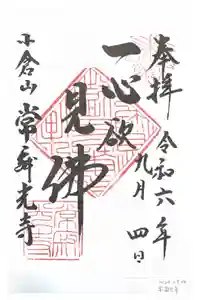 奉拝
令和六年
九月四日
一心欲
見佛
小倉山
常寂光寺